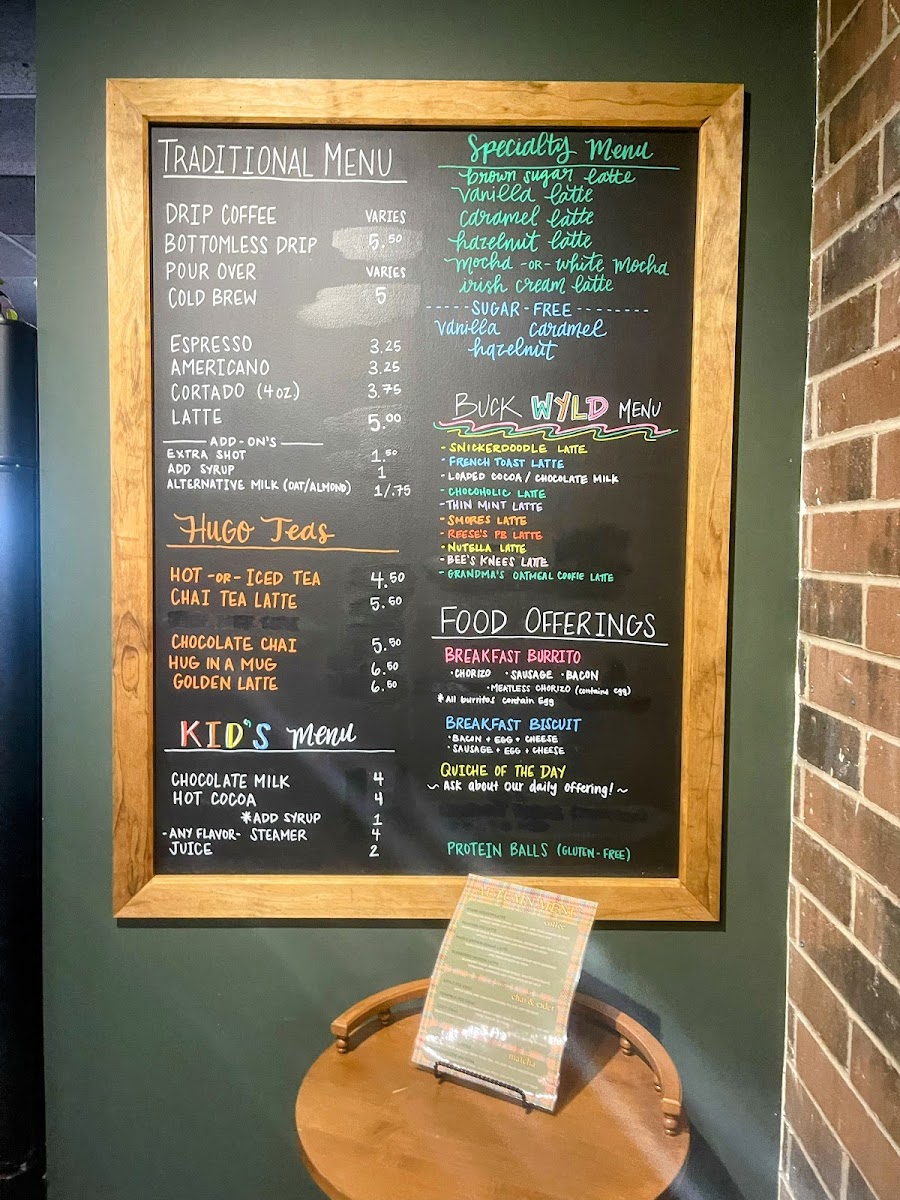 TRADITIONAL MENU
DRIP COFFEE VARIES
BOTTOMLESS DRIP 5.50
POUR OVER VARIES
COLD BREW 5
ESPRESSO 3.25
AMERICANO 3.25
CORTADO (4oz) 3.75
LATTE 5.00
ADD-ON'S
EXTRA SHOT 1.50
ADD SYRUP 1
ALTERNATIVE MILK (OAT/ALMOND) 1/.75
HUGO Teas
HOT -OR- ICED TEA 4.50
CHAI TEA LATTE 5.50
CHOCOLATE CHAI 5.50
HUG IN A MUG 6.50
GOLDEN LATTE 6.50
KID'S menu
CHOCOLATE MILK 4
HOT COCOA 4
*ADD SYRUP 1
-ANY FLAVOR- STEAMER 4
JUICE 2
Specialty Menu
brown sugar latte
vanilla latte
caramel latte
hazelnut latte
mocha -OR- white mocha
irish cream latte
-----SUGAR-FREE--------
vanilla caramel
hazelnut
BUCK WYLD MENU
- SNICKERDOODLE LATTE
- FRENCH TOAST LATTE
- LOADED COCOA / CHOCOLATE MILK
- CHOCOHOLIC LATTE
- THIN MINT LATTE
- SMORES LATTE
- REESE'S PB LATTE
- NUTELLA LATTE
- BEE'S KNEES LATTE
- GRANDMA'S OATMEAL COOKIE LATTE
FOOD OFFERINGS
BREAKFAST BURRITO
·CHORIZO ·SAUSAGE ·BACON
·MEATLESS CHORIZO (contains egg)
*All burritos contain Egg
BREAKFAST BISCUIT
·BACON + EGG + CHEESE
·SAUSAGE + EGG + CHEESE
QUICHE OF THE DAY
~ Ask about our daily offering! ~
PROTEIN BALLS (GLUTEN-FREE)
AUTUMN MENU
coffee
chai & cider
matcha